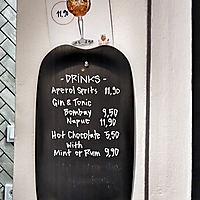 11,90
-DRINKS-
Aperol Sprits 11,90
Gin & Tonic
Bombay 9,50
Napue 11,90
Hot Chocolate 5,50
with
Mint or Rum 9,90